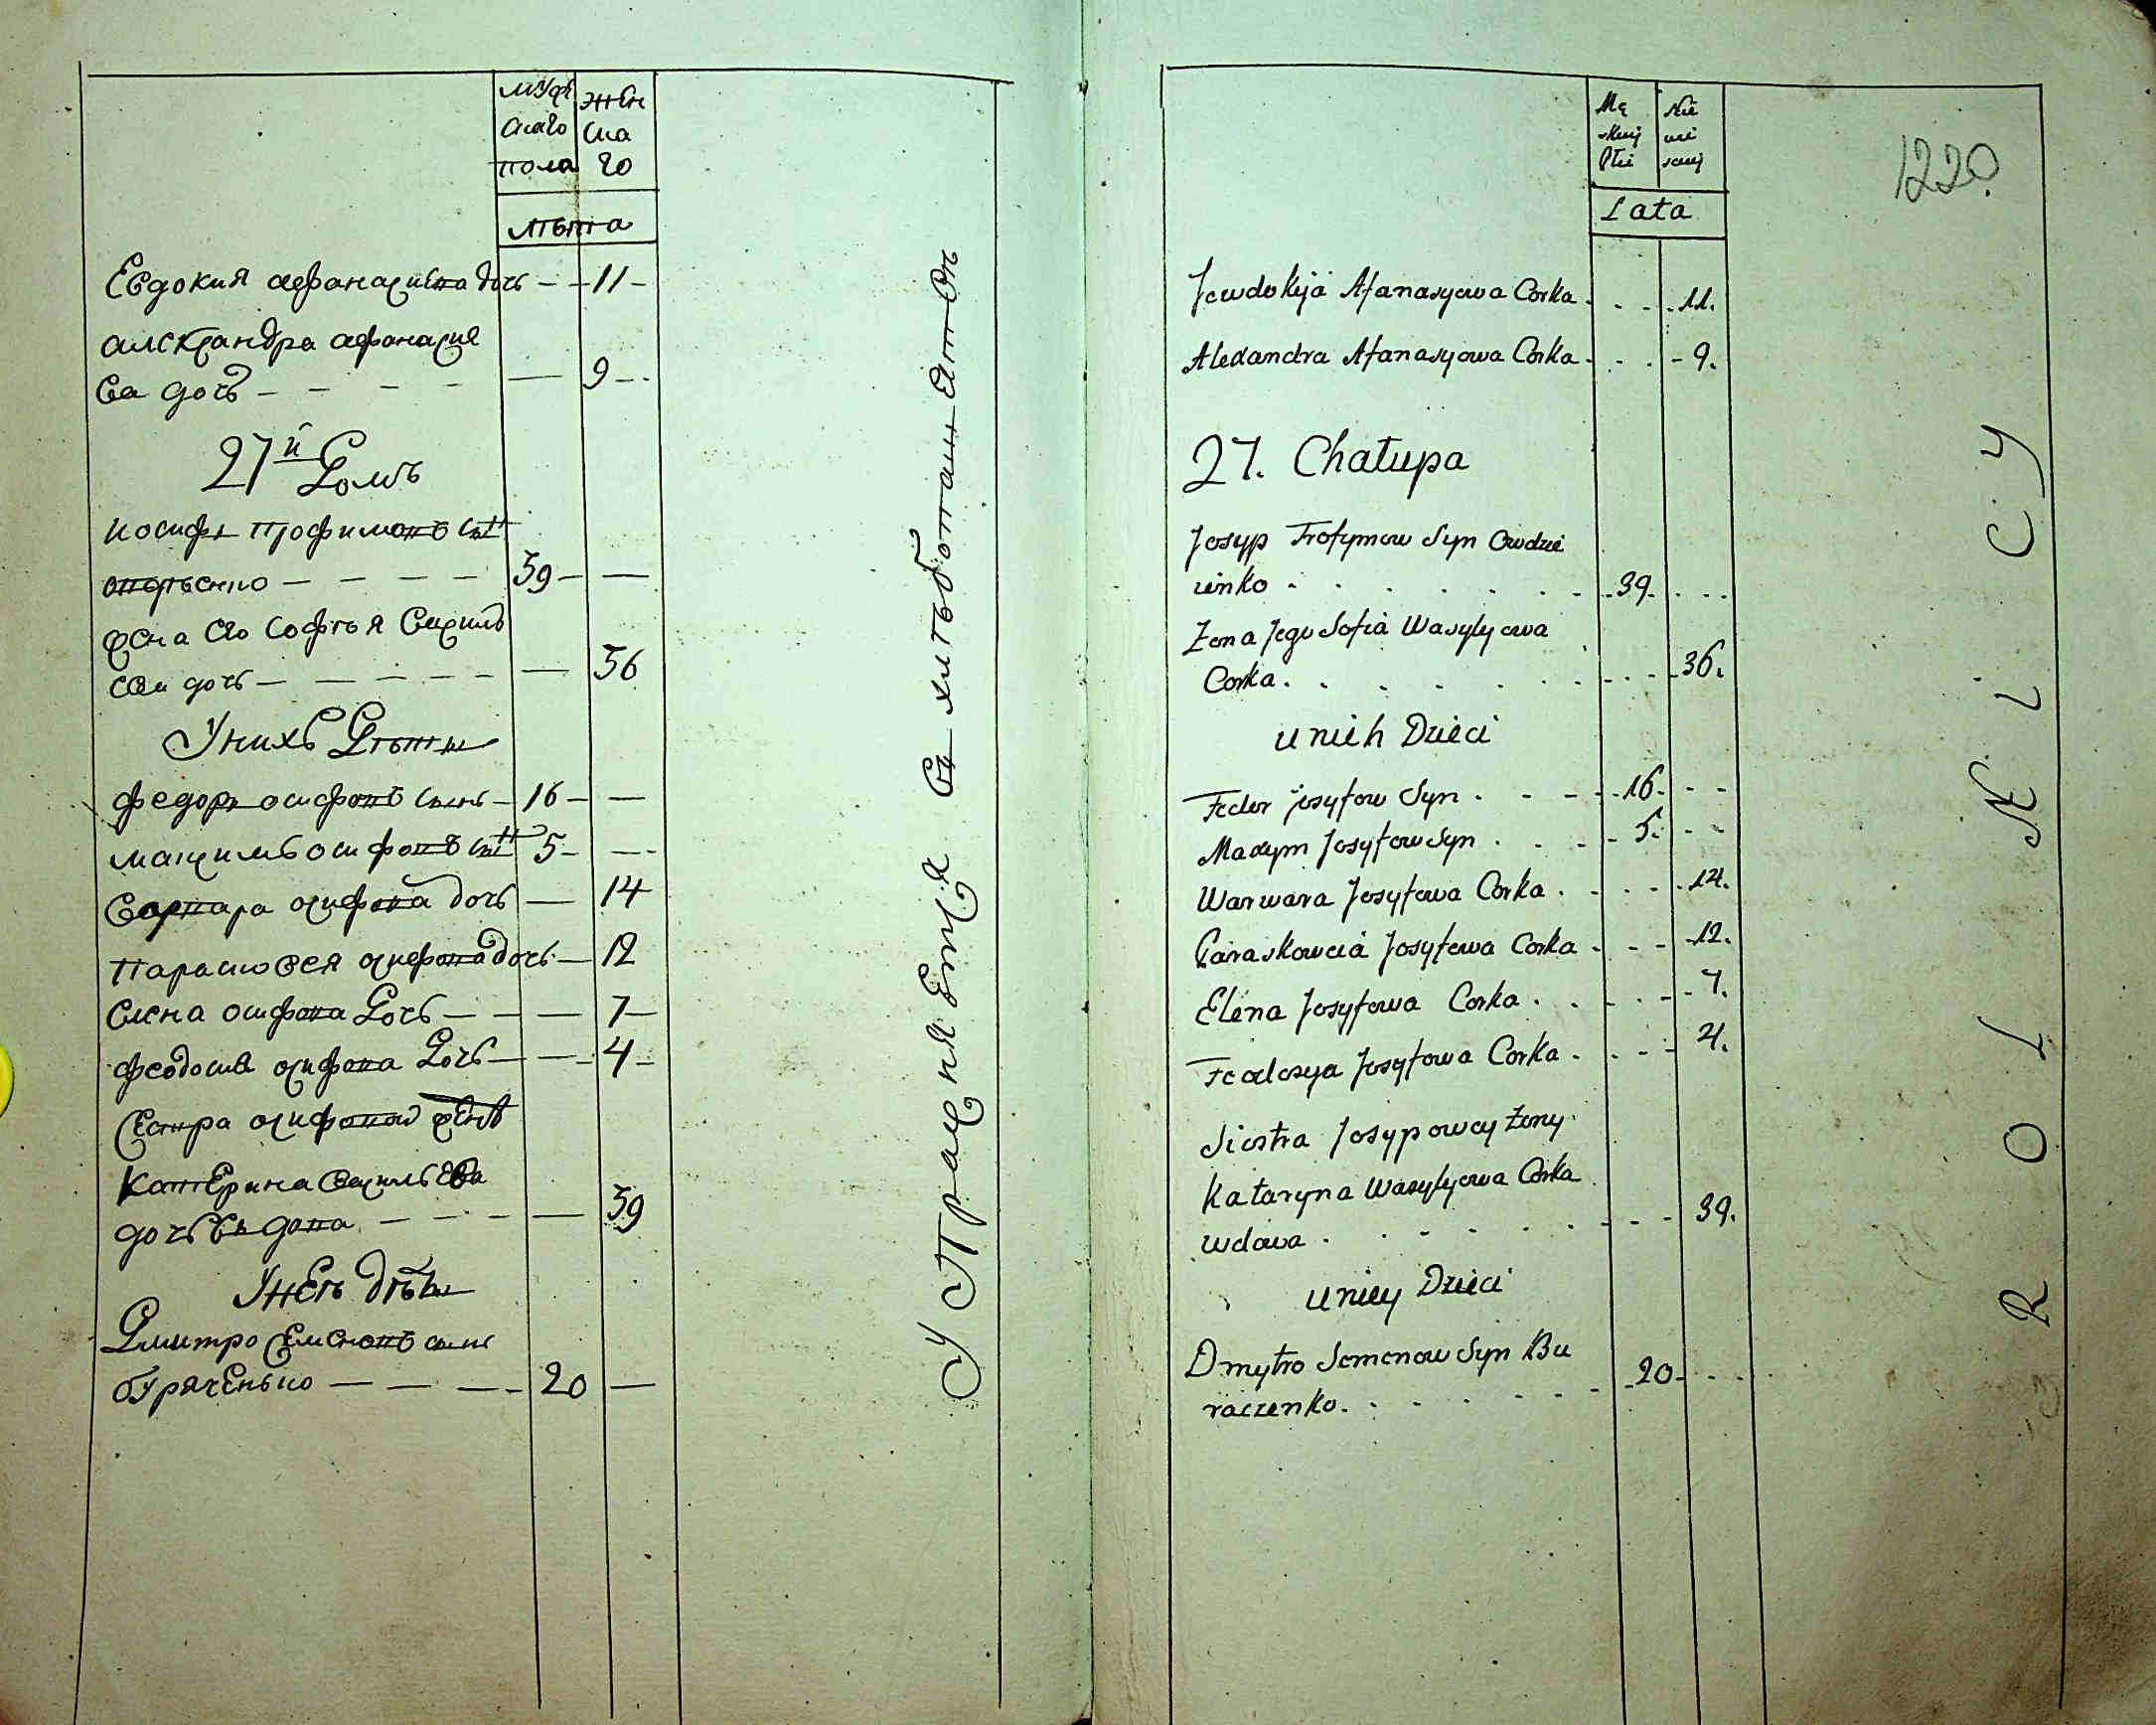 мужскаго пола
женскаго
лѣта
Евдокия афанасиева дочь — — 11 —
александра афанасие
ва дочь — — — — — 9 — .
27й Домъ
иосифъ трофимовъ сын
овдѣенко — — — — 39 — —
жена его софѣя васил
ева дочь — — — — — — 36
У нихъ Дѣти
федоръ осифовъ сынъ — 16 — —
максимъ осифовъ сын 5 — — -
варвара осифова дочь — 14
парасковея осифова дочь — 12
елена осифова Дочь — — — 7 —
феодосия осифова Дочь — — 4 —
сестра осифовой жены
катерина васильева
дочь вдова — — — — 39
У неѣ дѣти
Дмитро семеновъ сынъ
буряченько — — — - 20 —
Упражняется в хлѣбопашестве
Mę
skiej
Płci
Nie
wie
sciej
Lata
1220.
Jewdokija Afanasyowa Corka . - . - 11.
Alexandra Afanasyowa Corka . . . - 9.
27. Chałupa
Josyp Trofymow Syn Owdzie
ienko - . . . . . - - 39. . . .
Zona Jego Sofia Wasylyowa
Corka . . . . . . - - . - 36.
u nich Dzieci
Fedor josyfow Syn . - - - 16. - -
Maxym Josyfow Syn . . . - 5. - -
Warwara Josyfowa Corka . - . - . 14.
Paraskoweia Josyfowa Corka . - - 12.
Elena Josyfowa Corka . . - . - - 7.
Feodosya Josyfowa Corka . . - - 4.
Siostra Josypowey Zony
Kataryna Wasylyowa Corka
wdowa . . - - - . - - - 39.
u niey Dzieci
Dmytro Semenow Syn Bu
raczenko . . . - - - - 20 - . .
ROLNICY